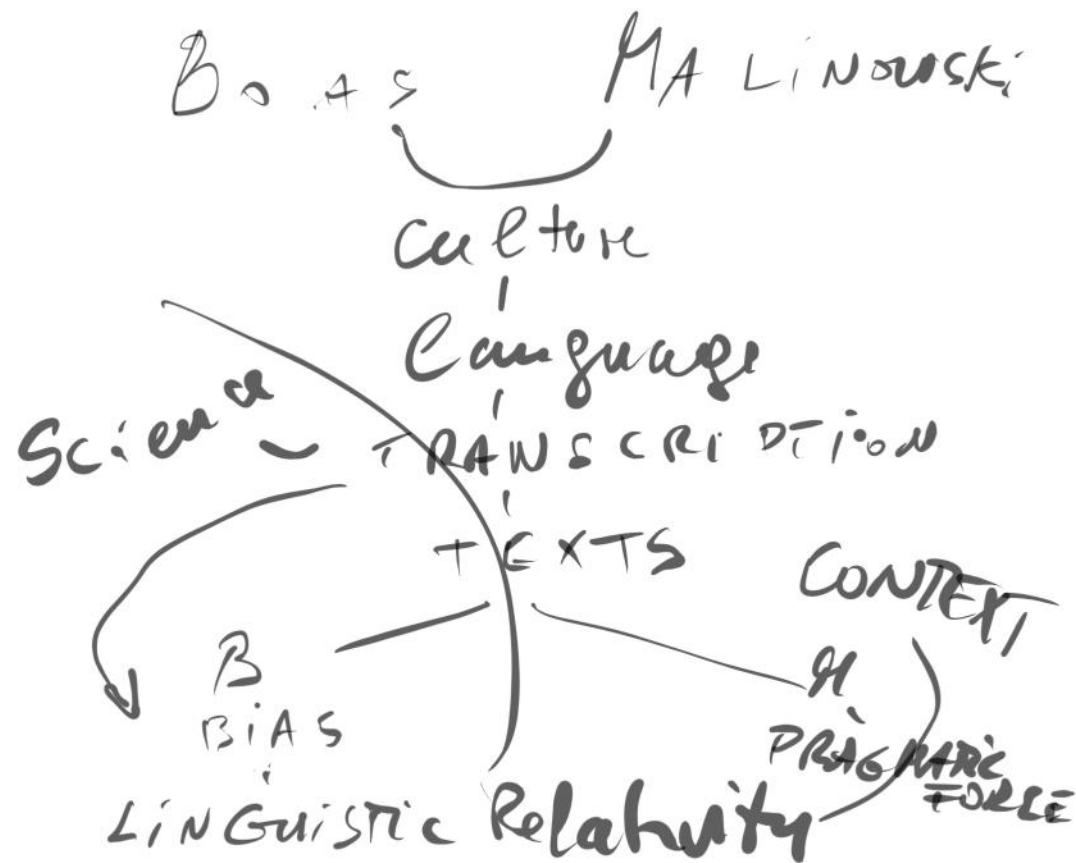 BOAS MALINOWSKI
Culture
Language
Science TRANSCRIPTION
TEXTS
CONTEXT
B M
BiAS PRAGMATIC
FORCE
LiNGUiSTiC Relativity